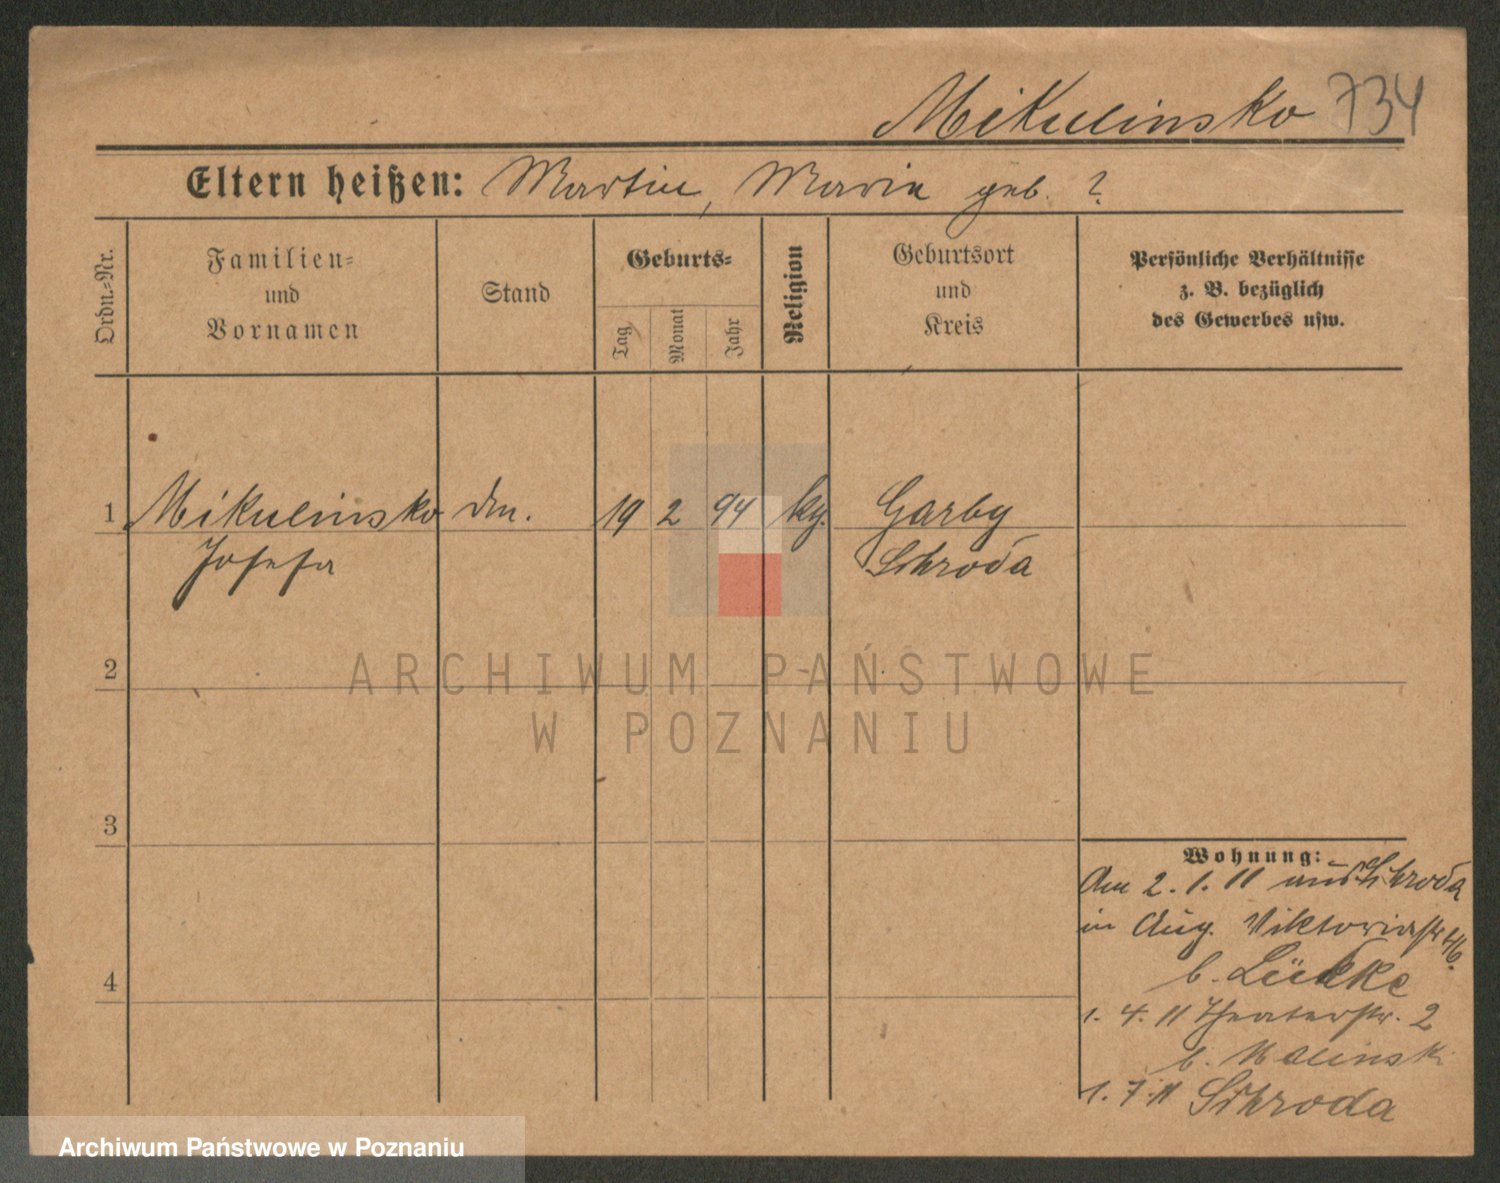 Mikulinska 734
Eltern heißen: Martin, Maria geb. ?
Ordn.-Nr.
Familien-
und
Vornamen
Stand
Geburts-
Tag
Monat
Jahr
Religion
Geburtsort
und
Kreis
Persönliche Verhältnisse
z. B. bezüglich
des Gewerbes usw.
1 Mikulinska 19 2 94 Garby
Josefa Schroda
2
3
4
Wohnung:
Am 2. 1. 11 aus Schroda
in Aug. Viktoriastr 46.
b. Lüdke
1. 4. 11 Theaterstr. 2
b. Malinski
1. 7. 11 Schroda
ARCHIWUM PAŃSTWOWE
W POZNANIU
Archiwum Państwowe w Poznaniu